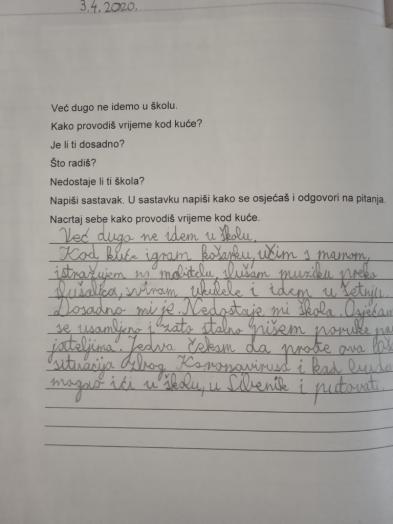 3.4.2020.
Već dugo ne idemo u školu.
Kako provodiš vrijeme kod kuće?
Je li ti dosadno?
Što radiš?
Nedostaje li ti škola?
Napiši sastavak. U sastavku napiši kako se osjećaš i odgovori na pitanja.
Nacrtaj sebe kako provodiš vrijeme kod kuće.
Već dugo ne idem u školu.
Kod kuće igram košarku, učim s mamom,
istražujem na mobitelu, slušam muziku preko
slušalica, sviram ukulele i idem u šetnju.
Dosadno mi je. Nedostaje mi škola. Osjećam
se usamljeno i zato stalno pišem poruke pri
jateljima. Jedva čekam da prođe ova
situacija zbog Koronavirusa i kad budem
mogao ići u školu, u Šibenik i putovati.